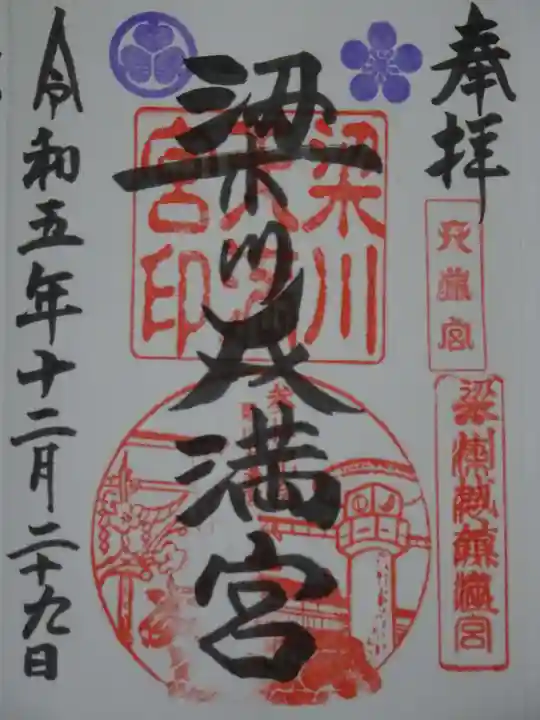 奉拝
天満宮
梁川天満宮
梁川天満宮印
令和五年十二月二十九日